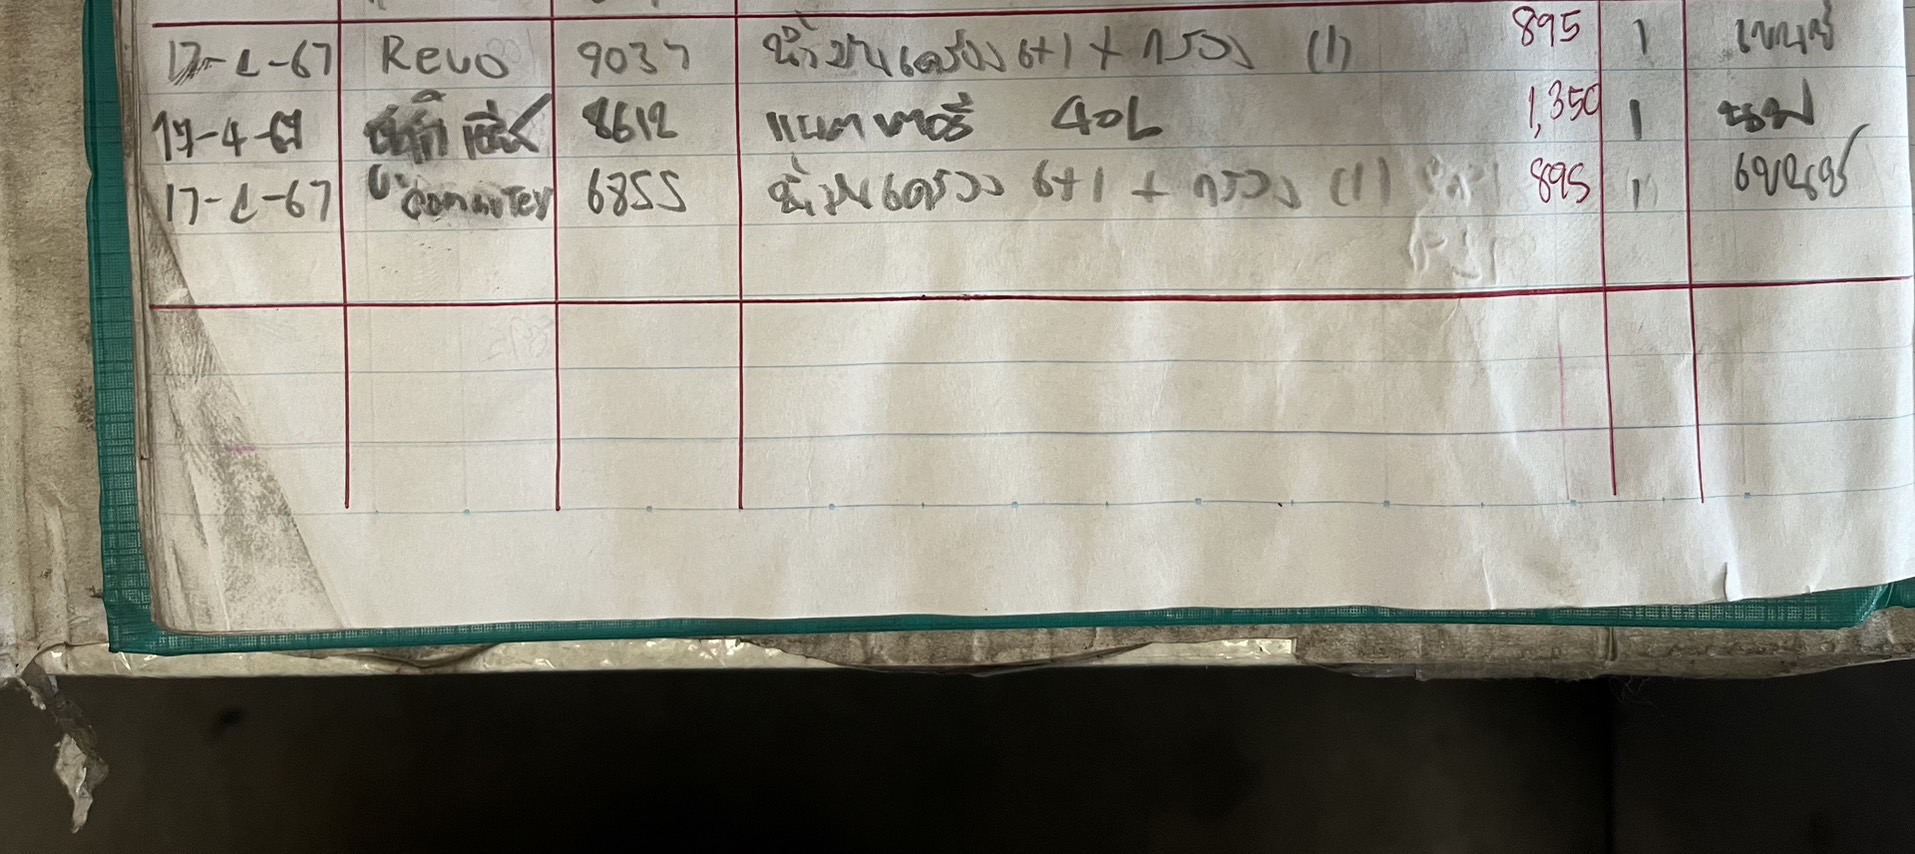 17-4-67 Revo 9037 น้ำมันเครื่อง 6+1 + กรอง (1) 895 1
17-4-67 8612 แบตเตอรี่ 40L 1,350 1
17-4-67 Commuter 6855 น้ำมันเครื่อง 6+1 + กรอง (1) 895 1